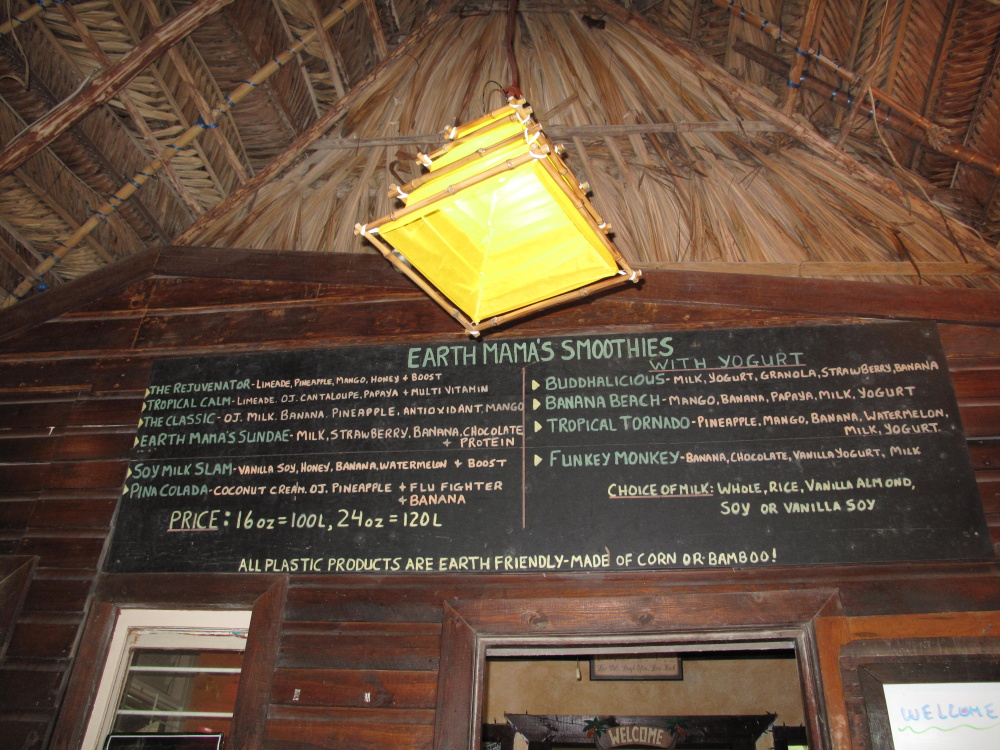 EARTH MAMA'S SMOOTHIES
THE REJUVENATOR-LIMEADE, PINEAPPLE, MANGO, HONEY + BOOST
TROPICAL CALM-LIMEADE. OJ. CANTALOUPE, PAPAYA + MULTI VITAMIN
THE CLASSIC- OJ. MILK. BANANA. PINEAPPLE, ANTIOXIDANT, MANGO
EARTH MAMA'S SUNDAE- MILK, STRAWBERRY, BANANA, CHOCOLATE
+ PROTEIN
SOY MILK SLAM-VANILLA SOY, HONEY, BANANA, WATERMELON + BOOST
PINA COLADA-COCONUT CREAM. OJ. PINEAPPLE + FLU FIGHTER
+ BANANA
PRICE: 16oz=100L, 24oz=120L
WITH YOGURT
BUDDHALICIOUS-MILK, YOGURT, GRANOLA, STRAWBERRY, BANANA
BANANA BEACH-MANGO, BANANA, PAPAYA, MILK, YOGURT
TROPICAL TORNADO-PINEAPPLE, MANGO, BANANA, WATERMELON,
MILK, YOGURT.
FUNKEY MONKEY-BANANA, CHOCOLATE, VANILLA YOGURT, MILK
CHOICE OF MILK: WHOLE, RICE, VANILLA ALMOND,
SOY OR VANILLA SOY
ALL PLASTIC PRODUCTS ARE EARTH FRIENDLY-MADE OF CORN OR BAMBOO!
WELCOME
WELCOME